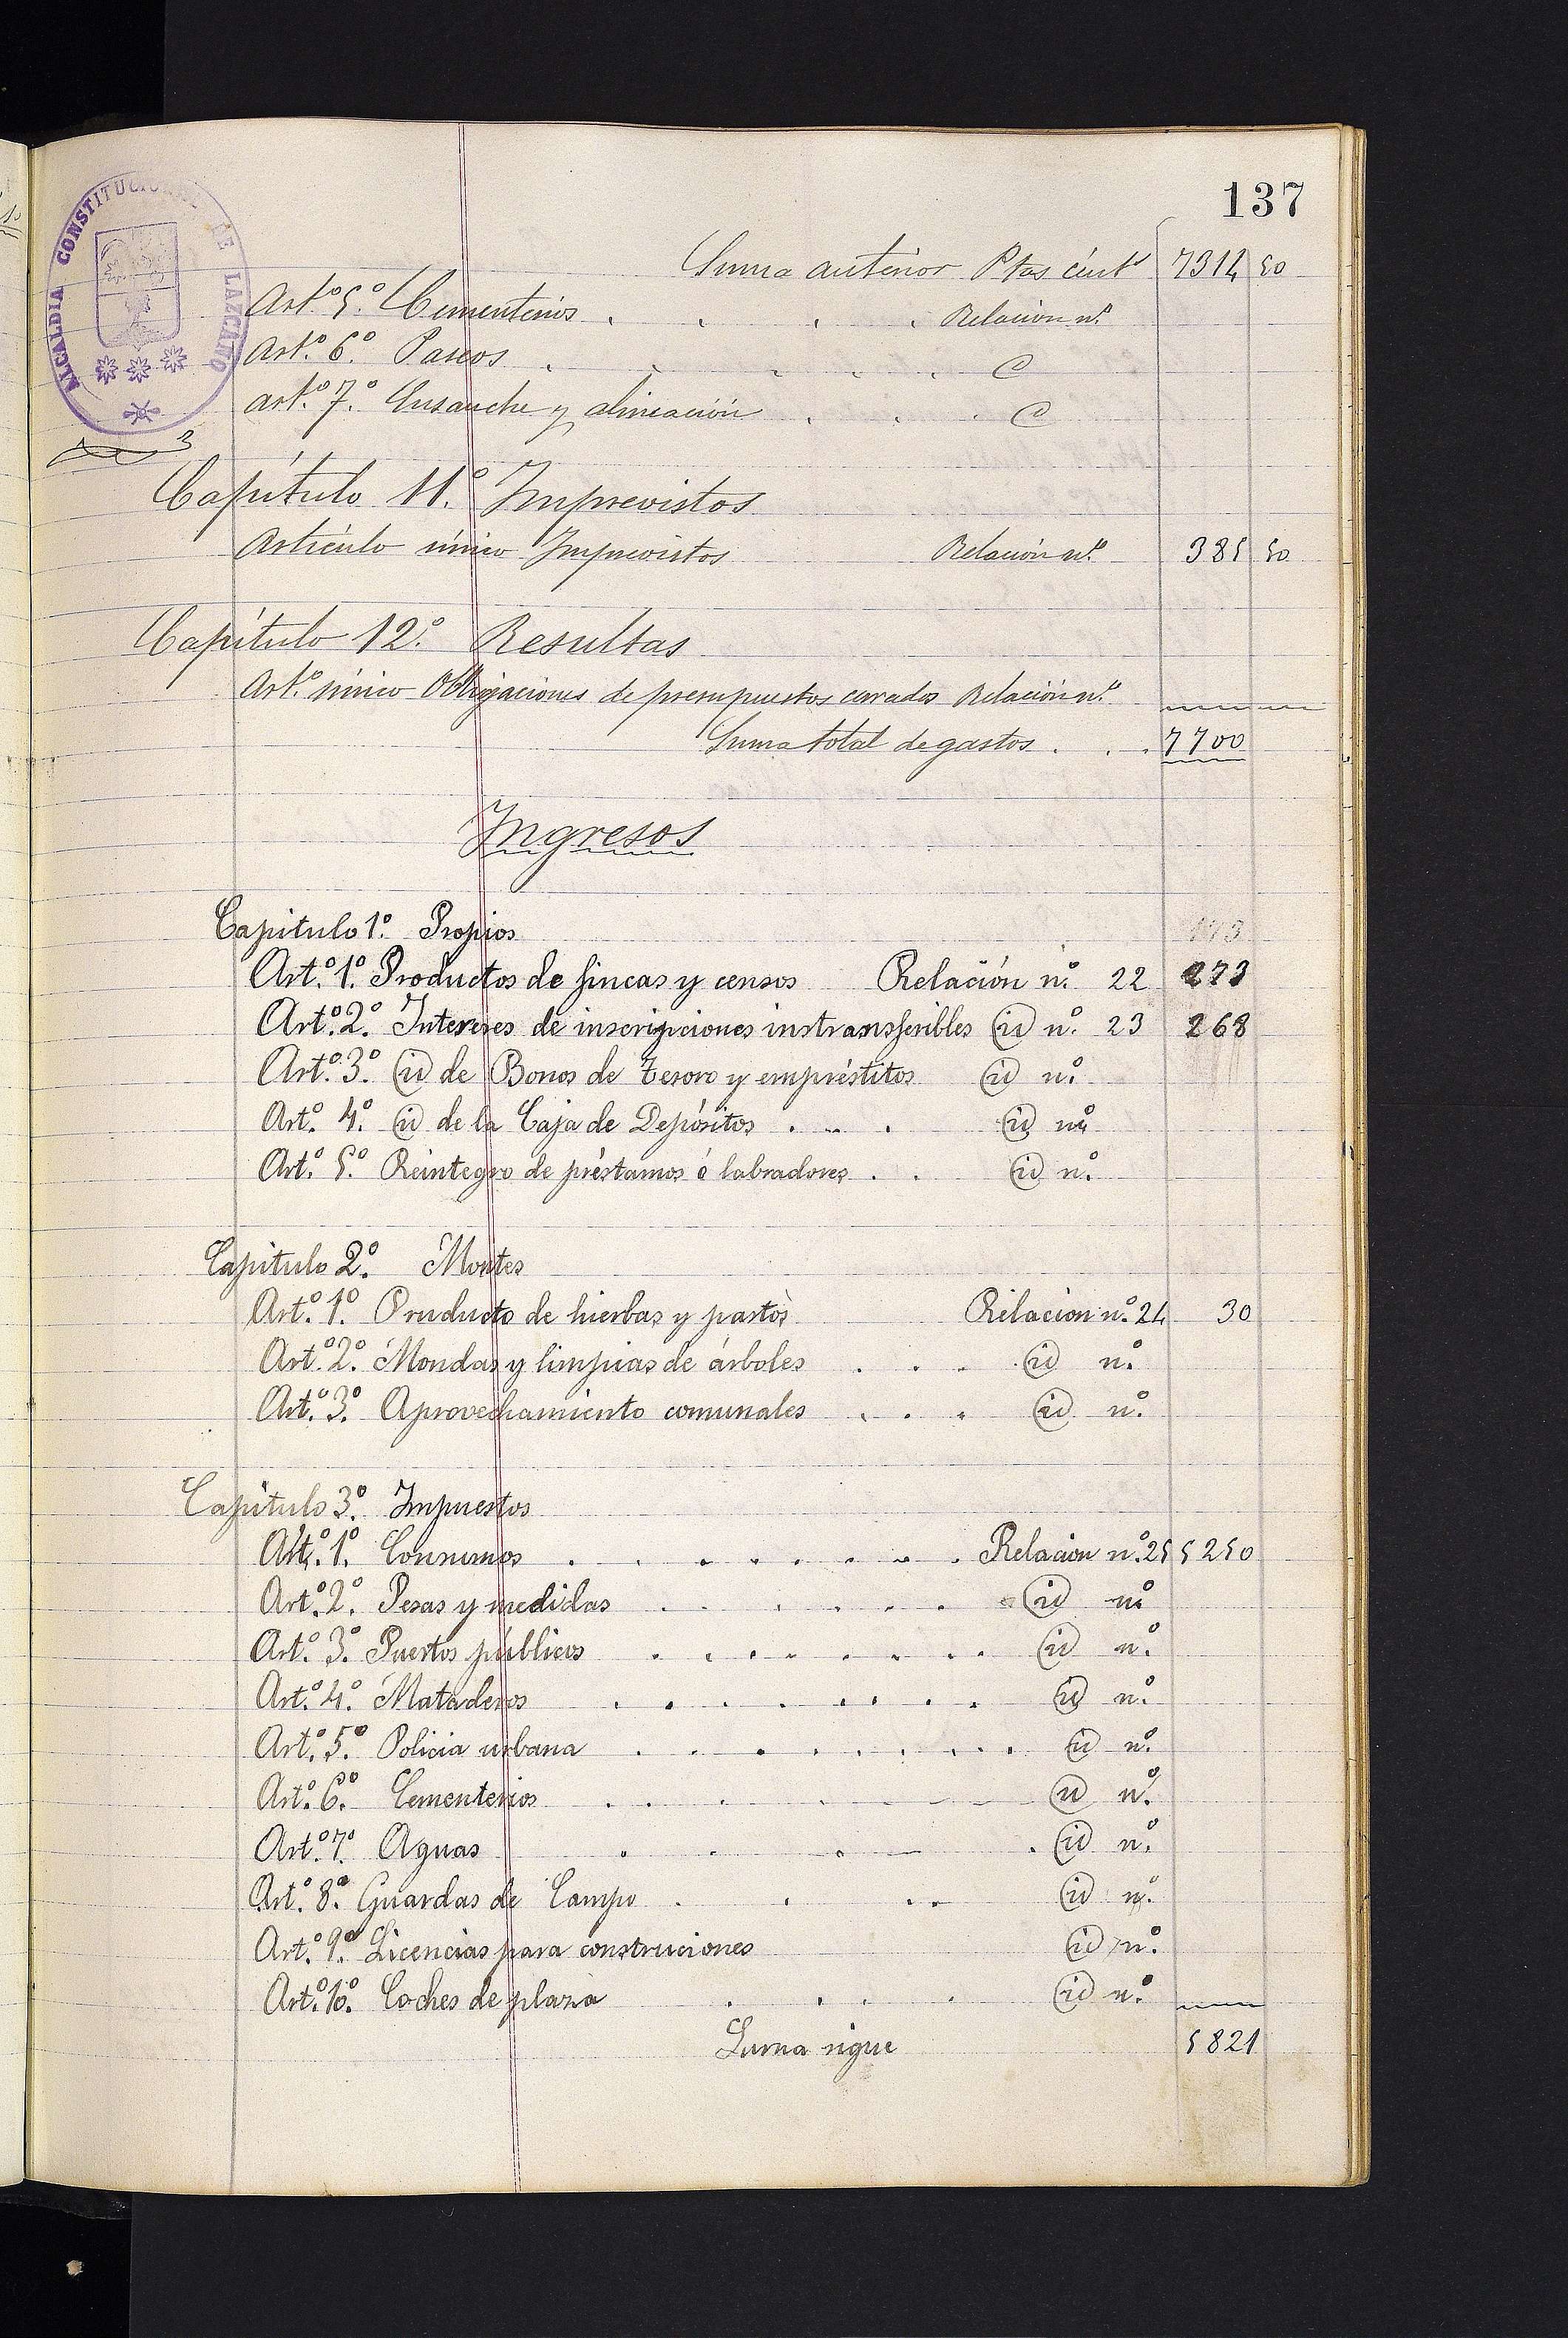 137
ALCALDIA CONSTITUCIONAL DE LAZCANO
Suma anterior Ptas cént.s 7314 50
Art.º 5.º Cementerios . . . . Relacion n.º
Art.º 6.º Paseos . . . . .
Art.º 7.º Ensanche y alineación . . .
Capítulo 11.º Imprevistos
Artículo único Imprevistos Relación n.º 385 50
Capítulo 12.º Resultas
Art.º único Obligaciones de presupuestos cerrados Relación n.º
Suma total de gastos . . . 7700
Ingresos
Capitulo 1.º Propios
Art.º 1.º Productos de fincas y censos Relación n.º 22 273
Art.º 2.º Intereses de inscripciones instransferibles id n.º 23 268
Art.º 3.º id de Bonos de Tesoro y empréstitos id n.º
Art.º 4.º id de la Caja de Depósitos . . . id n.º
Art.º 5.º Reintegro de préstamos á labradores . . id n.º
Capitulo 2.º Montes
Art.º 1.º Producto de hierbas y pastos Relacion n.º 24 30
Art.º 2.º Mondas y limpias de árboles . . . . id n.º
Art.º 3.º Aprovechamiento comunales . . . id n.º
Capitulo 3.º Impuestos
Art.º 1.º Consumos . . . . . . . . Relacion n.º 25 5250
Art.º 2.º Pesas y medidas . . . . . . id n.º
Art.º 3.º Puertos públicos . . . . . . . id n.º
Art.º 4.º Mataderos . . . . . . . . id n.º
Art.º 5.º Policia urbana . . . . . . . . id n.º
Art.º 6.º Cementerios . . . . id n.º
Art.º 7.º Aguas . . . . id n.º
Art.º 8.º Guardas de Campo . . . . id n.º
Art.º 9.º Licencias para construciones id n.º
Art.º 10.º Coches de plaza . . . . id n.º
Suma sigue 5821